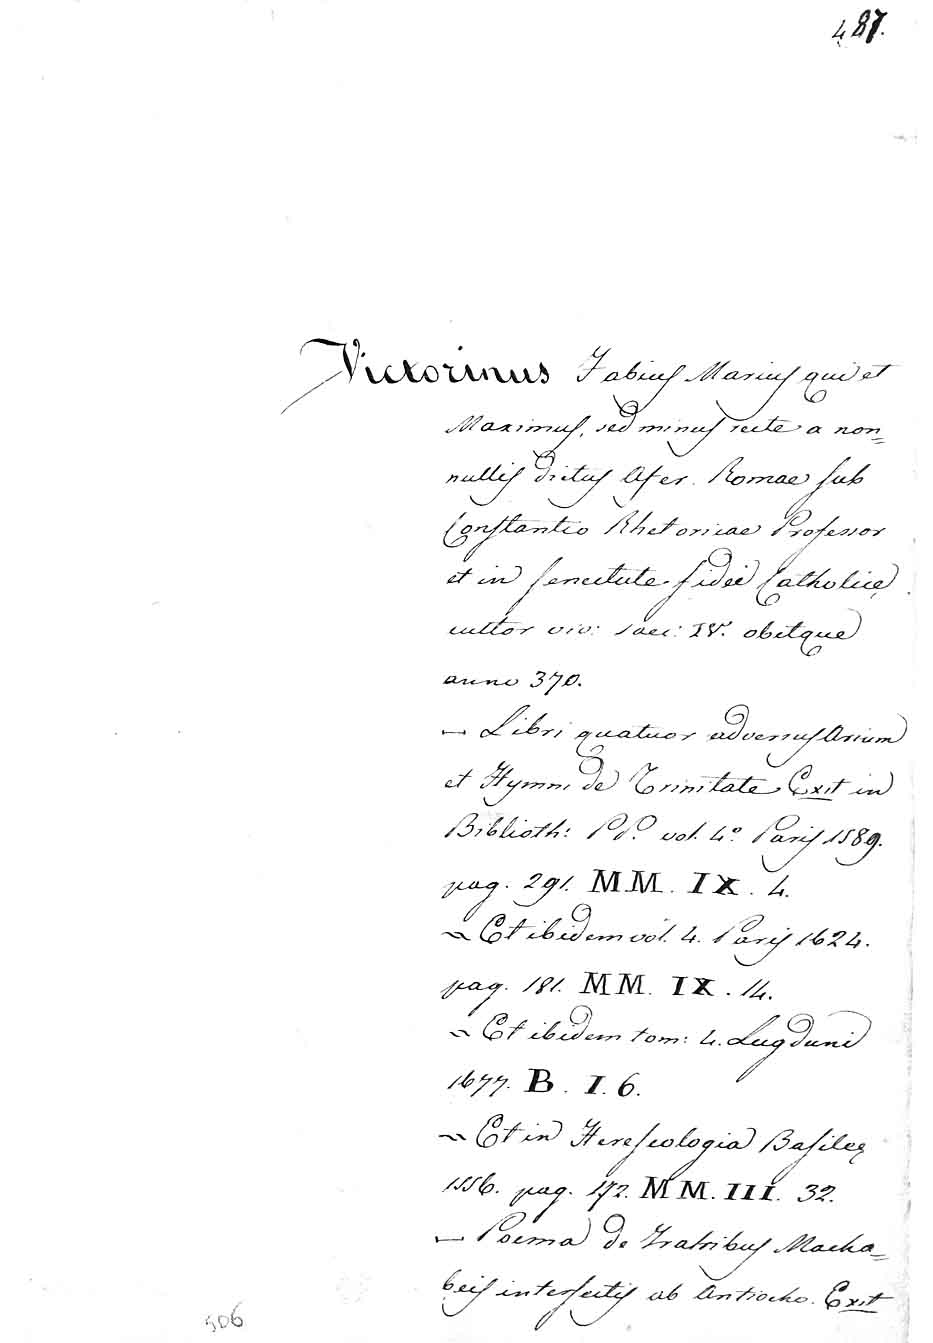 487.
Victorinus Fabius Marius qui et
Maximus, sed minus recte a non=
nullis dictus Afer. Romae sub
Constantio Rhetoricae Professor
et in senectute fidei Catholicę
cultor viv: saec: IV. obitque
anno 370.
— Libri quatuor adversus Arium
et Hymni de Trinitate Exit in
Biblioth: PP. vol. 4º Paris 1589.
pag. 291. MM. IX. 4.
~ Et ibidem vol. 4. Paris 1624.
pag. 181. MM. IX. 14.
~ Et ibidem tom: 4. Lugduni
1677. B. I. 6.
~ Et in Hereseologia Basileę
1556. pag. 172. MM. III. 32.
— Poema de Fratribus Macha=
beis interfectis ab Antiocho. Exit
506